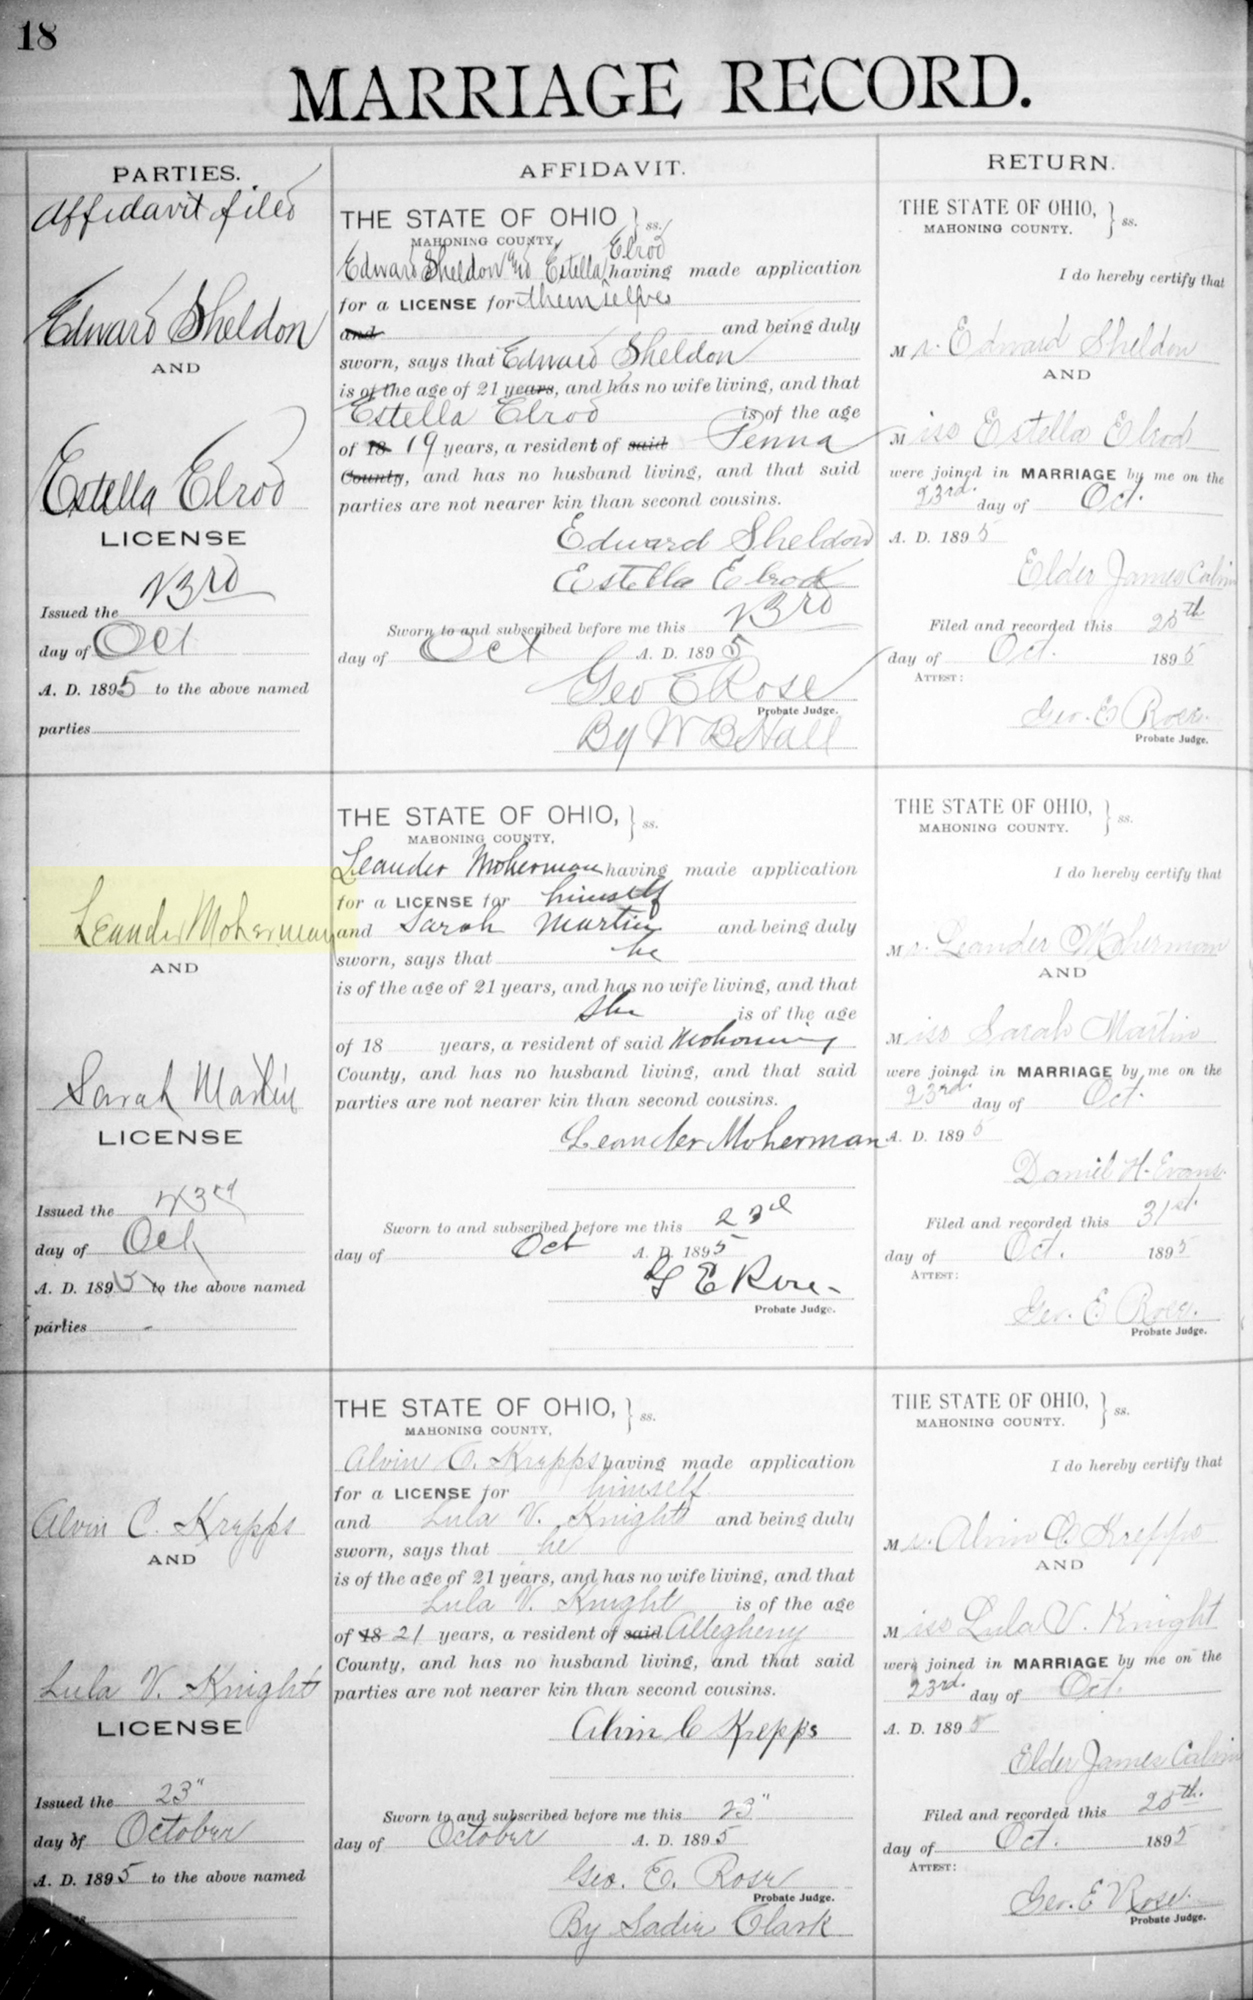 18
MARRIAGE RECORD.
PARTIES.
Affidavit filed
Edward Sheldon
AND
Estella Elrod
LICENSE
Issued the 23rd
day of Oct
A. D. 1895 to the above named
parties
AFFIDAVIT.
THE STATE OF OHIO } ss.
MAHONING COUNTY,
Elrod
Edward Sheldon and Estella having made application
for a LICENSE for themselves
and and being duly
sworn, says that Edward Sheldon
is of the age of 21 years, and has no wife living, and that
Estella Elrod is of the age
of 18 19 years, a resident of said Penna
County, and has no husband living, and that said
parties are not nearer kin than second cousins.
Edward Sheldon
Estella Elrod
Sworn to and subscribed before me this 23rd
day of Oct A. D. 1895
Geo E Rose
Probate Judge.
By W B Hall
RETURN.
THE STATE OF OHIO, } ss.
MAHONING COUNTY.
I do hereby certify that
Mr. Edward Sheldon
AND
Miss Estella Elrod
were joined in MARRIAGE by me on the
23rd. day of Oct.
A. D. 1895
Elder James Calvin
Filed and recorded this 25th
day of Oct. 1895
ATTEST:
Geo. E Rose.
Probate Judge.
Leander Moherman
AND
Sarah Martin
LICENSE
Issued the 23rd
day of Oct
A. D. 1895 to the above named
parties -
THE STATE OF OHIO, } ss.
MAHONING COUNTY,
Leander Moherman having made application
for a LICENSE for himself
and Sarah Martin and being duly
sworn, says that he
is of the age of 21 years, and has no wife living, and that
she is of the age
of 18 years, a resident of said Mahoning
County, and has no husband living, and that said
parties are not nearer kin than second cousins.
Leander Moherman
Sworn to and subscribed before me this 23d
day of Oct A. D. 1895
G E Rose
Probate Judge.
THE STATE OF OHIO, } ss.
MAHONING COUNTY.
I do hereby certify that
Mr. Leander Moherman
AND
Miss Sarah Martin
were joined in MARRIAGE by me on the
23rd. day of Oct.
A. D. 1895
Daniel H. Evans.
Filed and recorded this 31st.
day of Oct. 1895
ATTEST:
Geo. E Rose.
Probate Judge.
Alvin C. Krepps
AND
Lula V. Knight
LICENSE
Issued the 23"
day of October
A. D. 1895 to the above named
THE STATE OF OHIO, } ss.
MAHONING COUNTY,
Alvin C. Krepps having made application
for a LICENSE for himself
and Lula V. Knight and being duly
sworn, says that he
is of the age of 21 years, and has no wife living, and that
Lula V. Knight is of the age
of 18 21 years, a resident of said Allegheny
County, and has no husband living, and that said
parties are not nearer kin than second cousins.
Alvin C Krepps
Sworn to and subscribed before me this 23"
day of October A. D. 1895
Geo. E. Rose
Probate Judge.
By Sadie Clark
THE STATE OF OHIO, } ss.
MAHONING COUNTY.
I do hereby certify that
Mr. Alvin C Krepps
AND
Miss Lula V. Knight
were joined in MARRIAGE by me on the
23rd. day of Oct.
A. D. 1895
Elder James Calvin
Filed and recorded this 25th.
day of Oct. 1895
ATTEST:
Geo. E Rose.
Probate Judge.